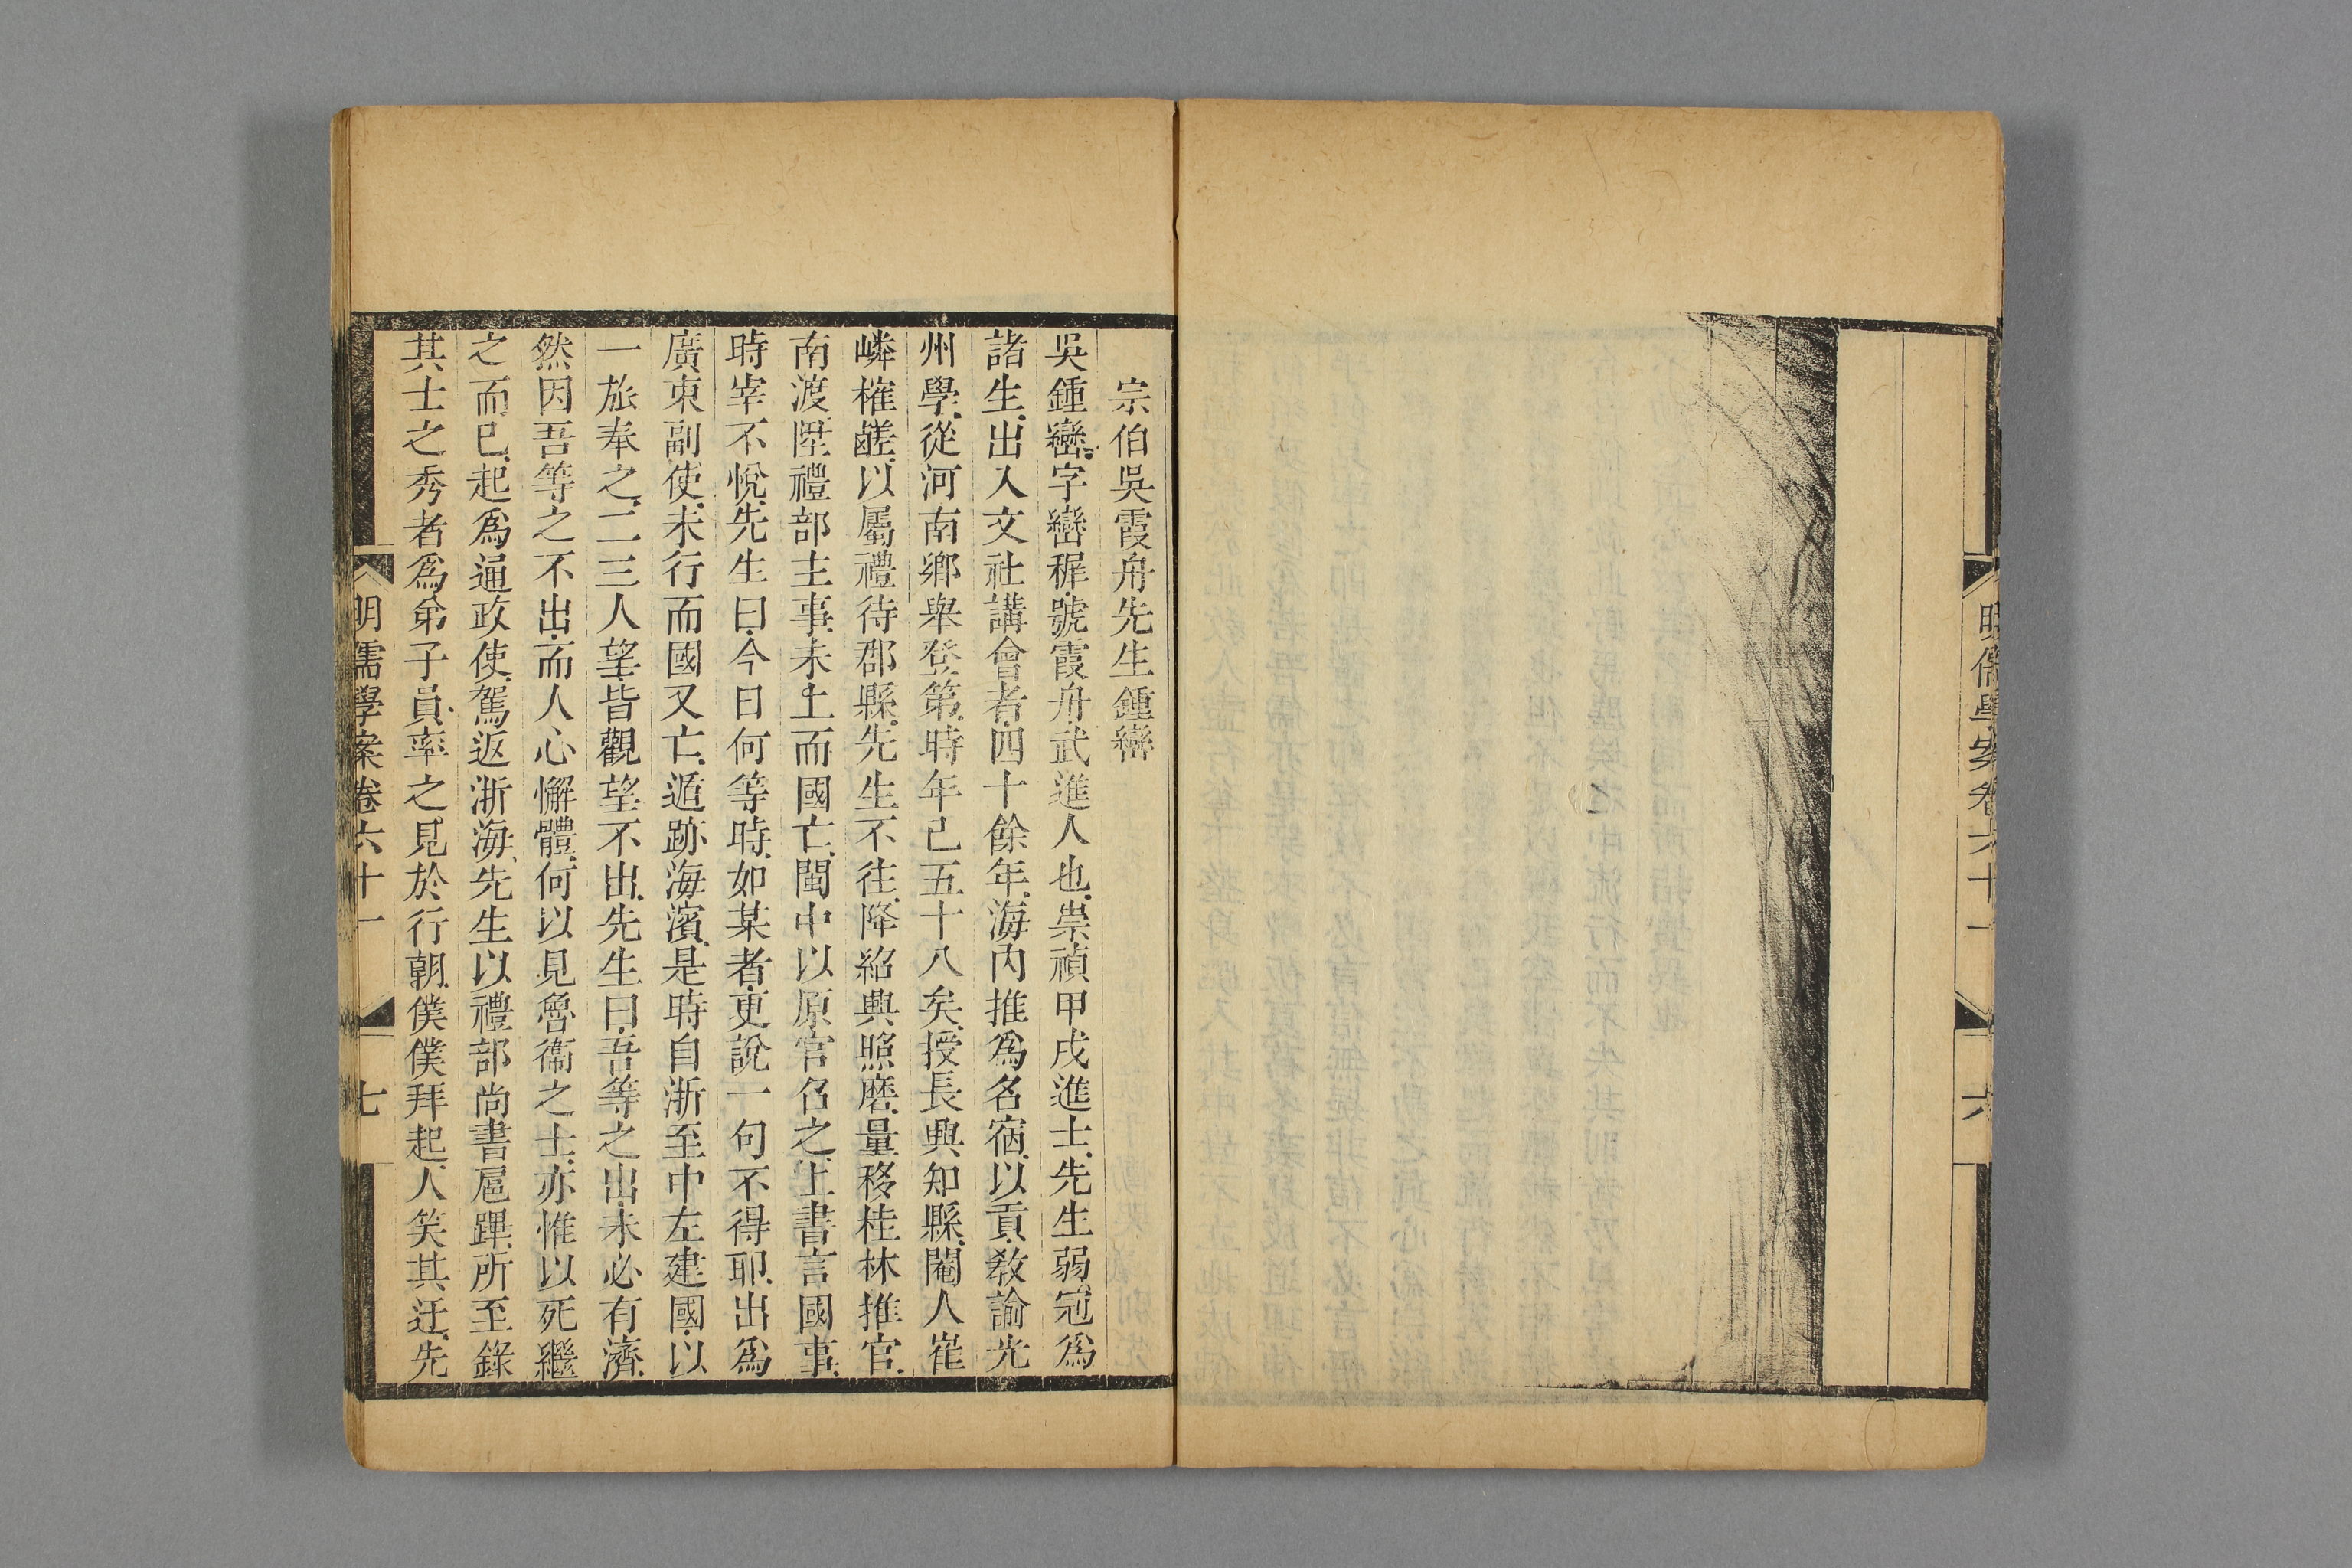 明儒學案卷六十一
六
宗伯吳霞舟先生鍾巒
吳鍾巒字巒穉號霞舟武進人也崇禎甲戌進士先生弱冠爲
諸生出入文社講會者四十餘年海內推爲名宿以貢教諭光
州學從河南鄉舉登第時年已五十八矣授長興知縣閹人崔
嶙榷鹺以屬禮待郡縣先生不往降紹興照磨量移桂林推官
南渡陞禮部主事未上而國亡閩中以原官召之上書言國事
時宰不悅先生曰今日何等時如某者更說一句不得耶出爲
廣東副使未行而國又亡遁跡海濱是時自浙至中左建國以
一旅奉之二三人望皆觀望不出先生曰吾等之出未必有濟
然因吾等之不出而人心懈體何以見魯衞之士亦惟以死繼
之而已起爲通政使駕返浙海先生以禮部尚書扈蹕所至錄
其士之秀者爲弟子員率之見於行朝僕僕拜起人笑其迂先
明儒學案卷六十一
七